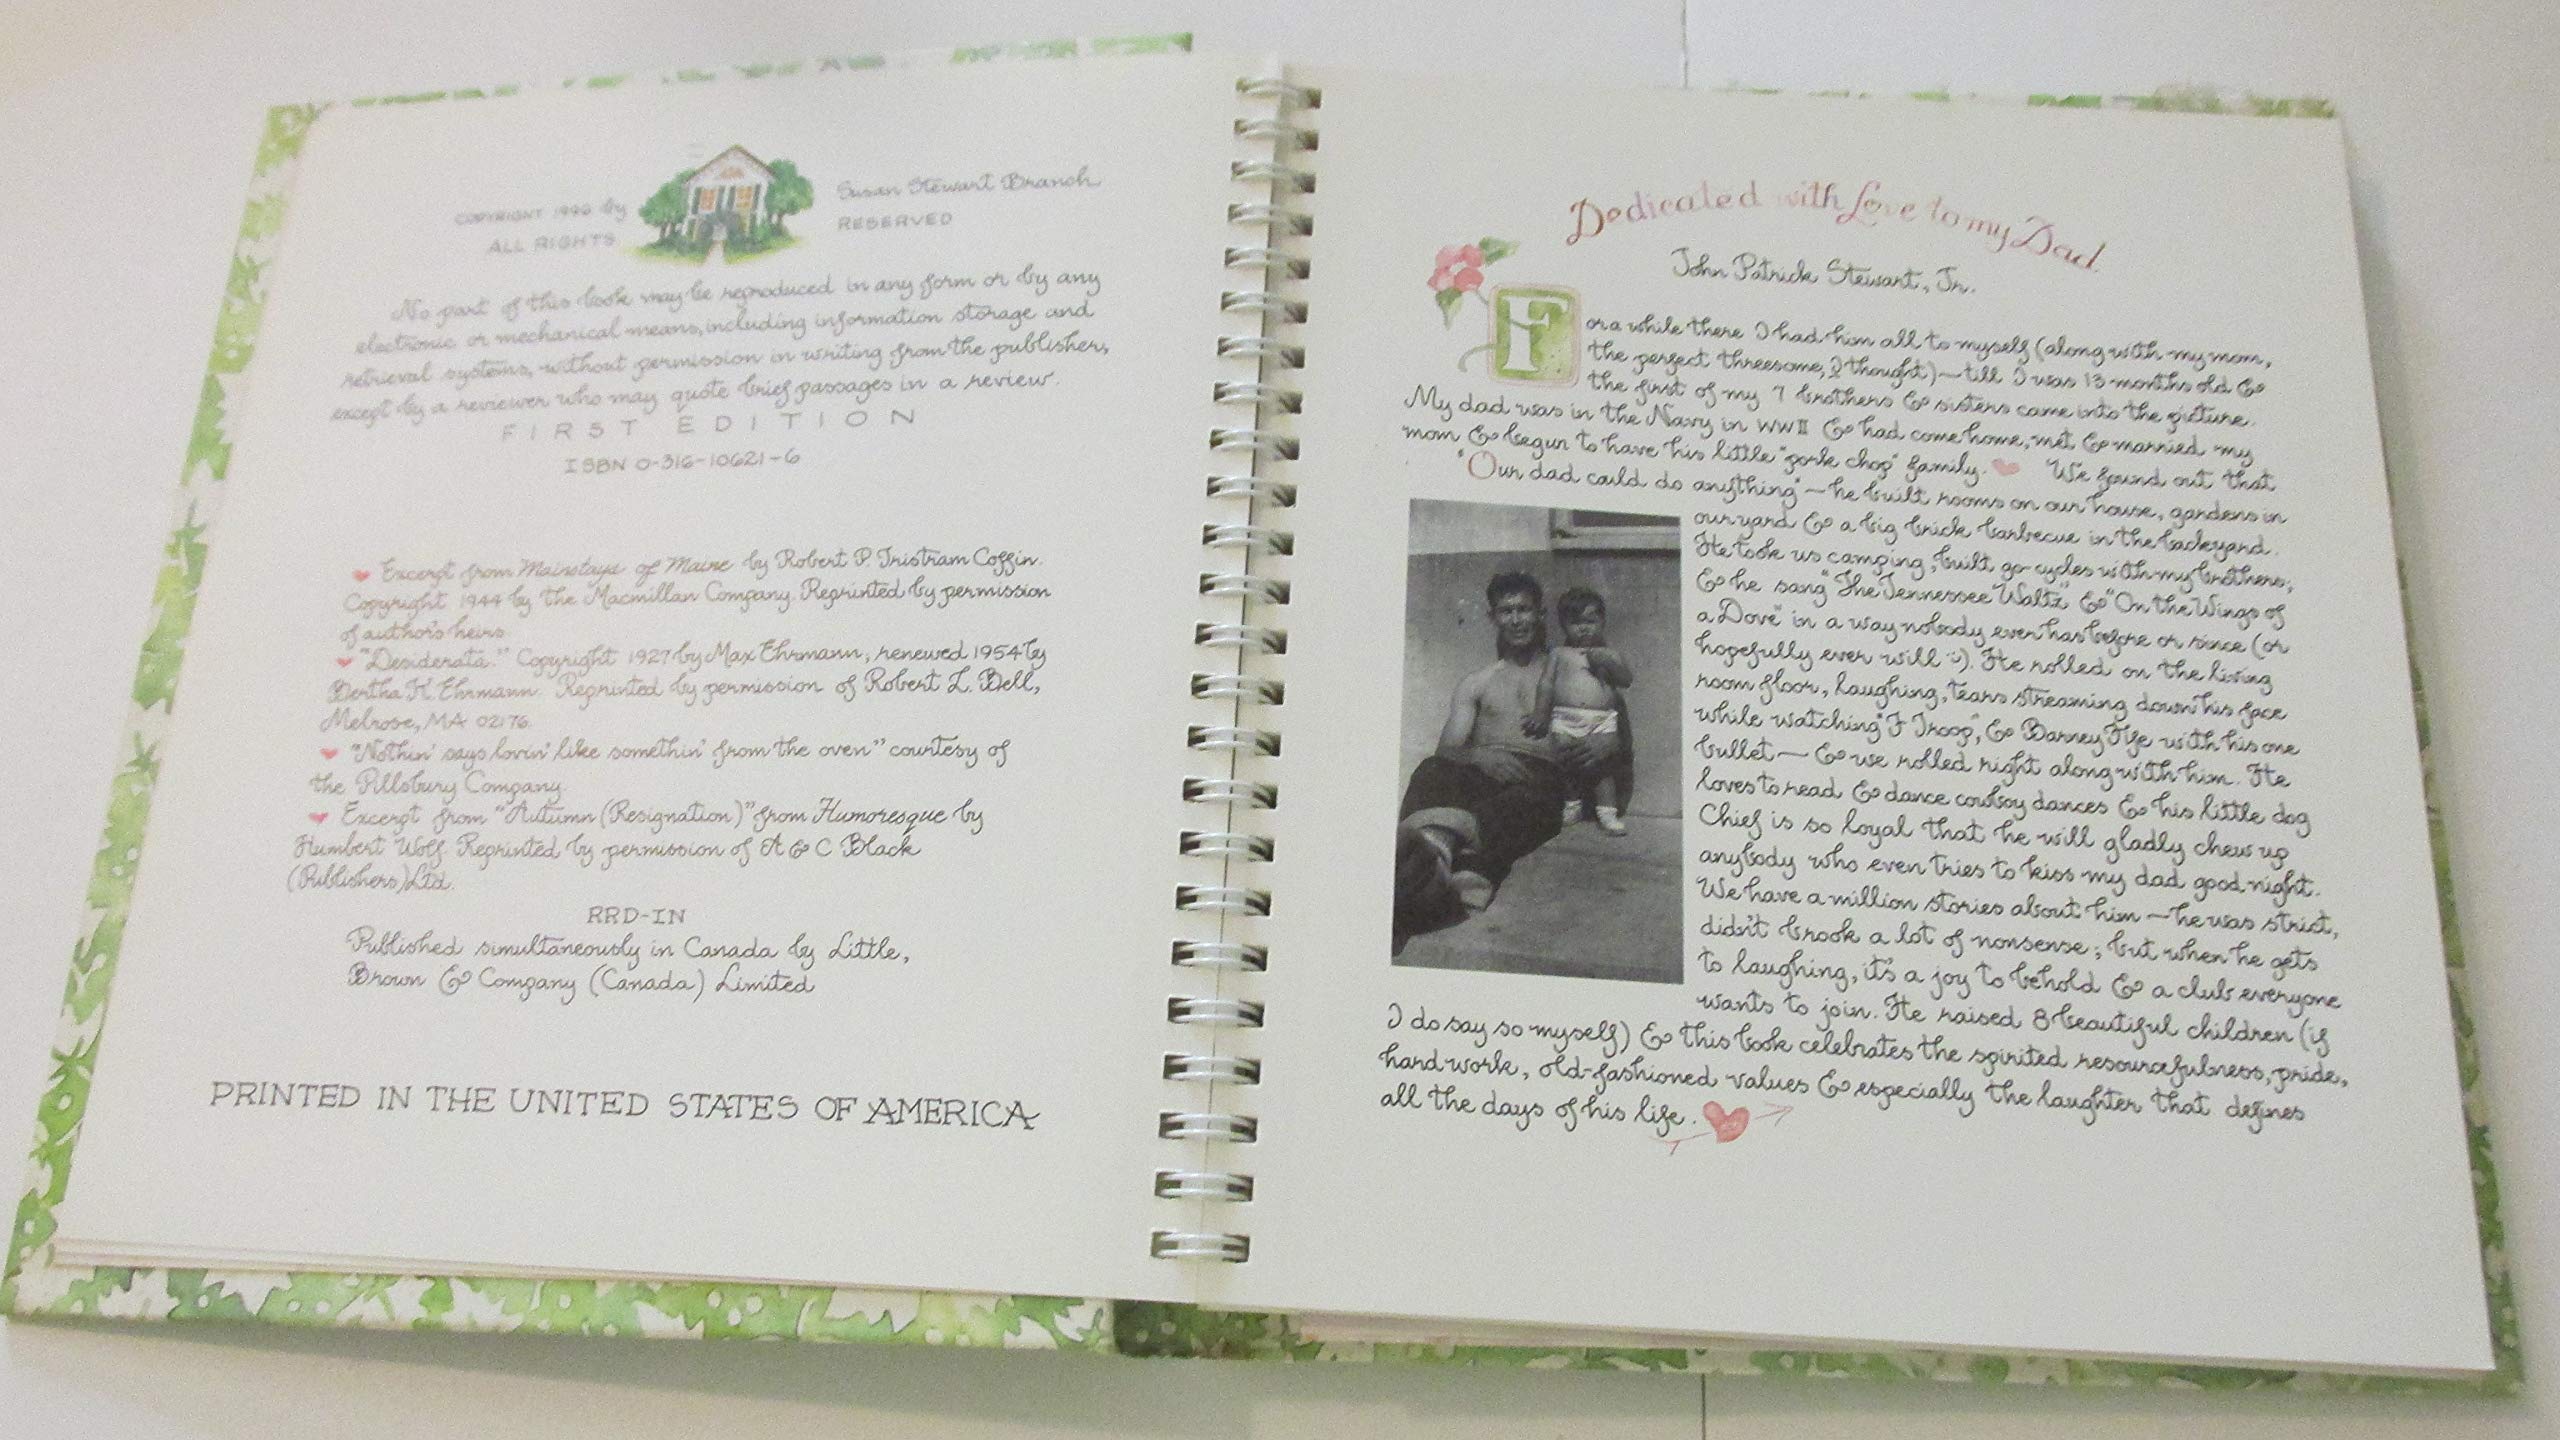 COPYRIGHT 1996 by Susan Stewart Branch
ALL RIGHTS RESERVED
No part of this book may be reproduced in any form or by any
electronic or mechanical means, including information storage and
retrieval systems, without permission in writing from the publisher,
except by a reviewer who may quote brief passages in a review.
FIRST EDITION
ISBN 0-316-10621-6
Excerpt from Mainstays of Maine by Robert P. Tristram Coffin.
Copyright 1944 by the Macmillan Company. Reprinted by permission
of author's heirs
"Desiderata." Copyright 1927 by Max Ehrmann, renewed 1954 by
Bertha K. Ehrmann. Reprinted by permission of Robert L. Bell,
Melrose, MA 02176.
"Nothin' says lovin' like somethin' from the oven" courtesy of
the Pillsbury Company.
Excerpt from "Autumn (Resignation)" from Humoresque by
Humbert Wolf. Reprinted by permission of A & C Black
(Publishers) Ltd.
RRD-IN
Published simultaneously in Canada by Little,
Brown & Company (Canada) Limited
PRINTED IN THE UNITED STATES OF AMERICA
Dedicated with Love to my Dad.
John Patrick Stewart, Jr.
For a while there I had him all to myself (along with my mom,
the perfect threesome, I thought) — till I was 13 months old &
the first of my 7 brothers & sisters came into the picture.
My dad was in the Navy in WWII & had come home, met & married my
mom & begun to have his little "pork chop" family. We found out that
"Our dad could do anything" — he built rooms on our house, gardens in
our yard & a big brick barbecue in the backyard.
He took us camping, built go-cycles with my brothers,
& he sang "The Tennessee Waltz" & "On the Wings of
a Dove" in a way nobody ever has before or since (or
hopefully ever will :). He rolled on the living
room floor, laughing, tears streaming down his face
while watching "F Troop", & Barney Fife with his one
bullet — & we rolled right along with him. He
loves to read & dance cowboy dances & his little dog
Chief is so loyal that he will gladly chew up
anybody who even tries to kiss my dad good night.
We have a million stories about him — he was strict,
didn't brook a lot of nonsense; but when he gets
to laughing, it's a joy to behold & a club everyone
wants to join. He raised 8 beautiful children (if
I do say so myself) & this book celebrates the spirited resourcefulness, pride,
hard work, old-fashioned values & especially the laughter that defines
all the days of his life.